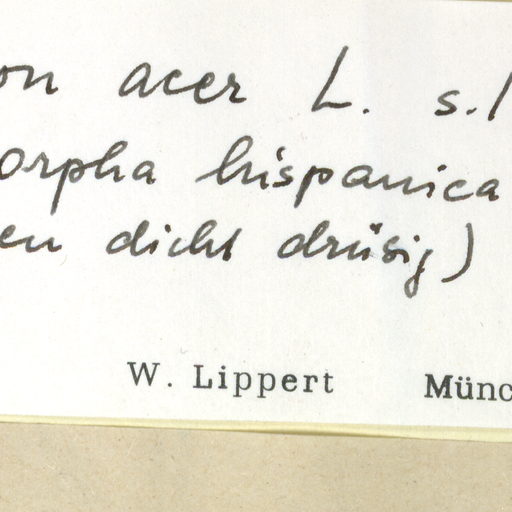 on acer L. s.l
orpha hispanica
en dicht drüsig)
W. Lippert Münc